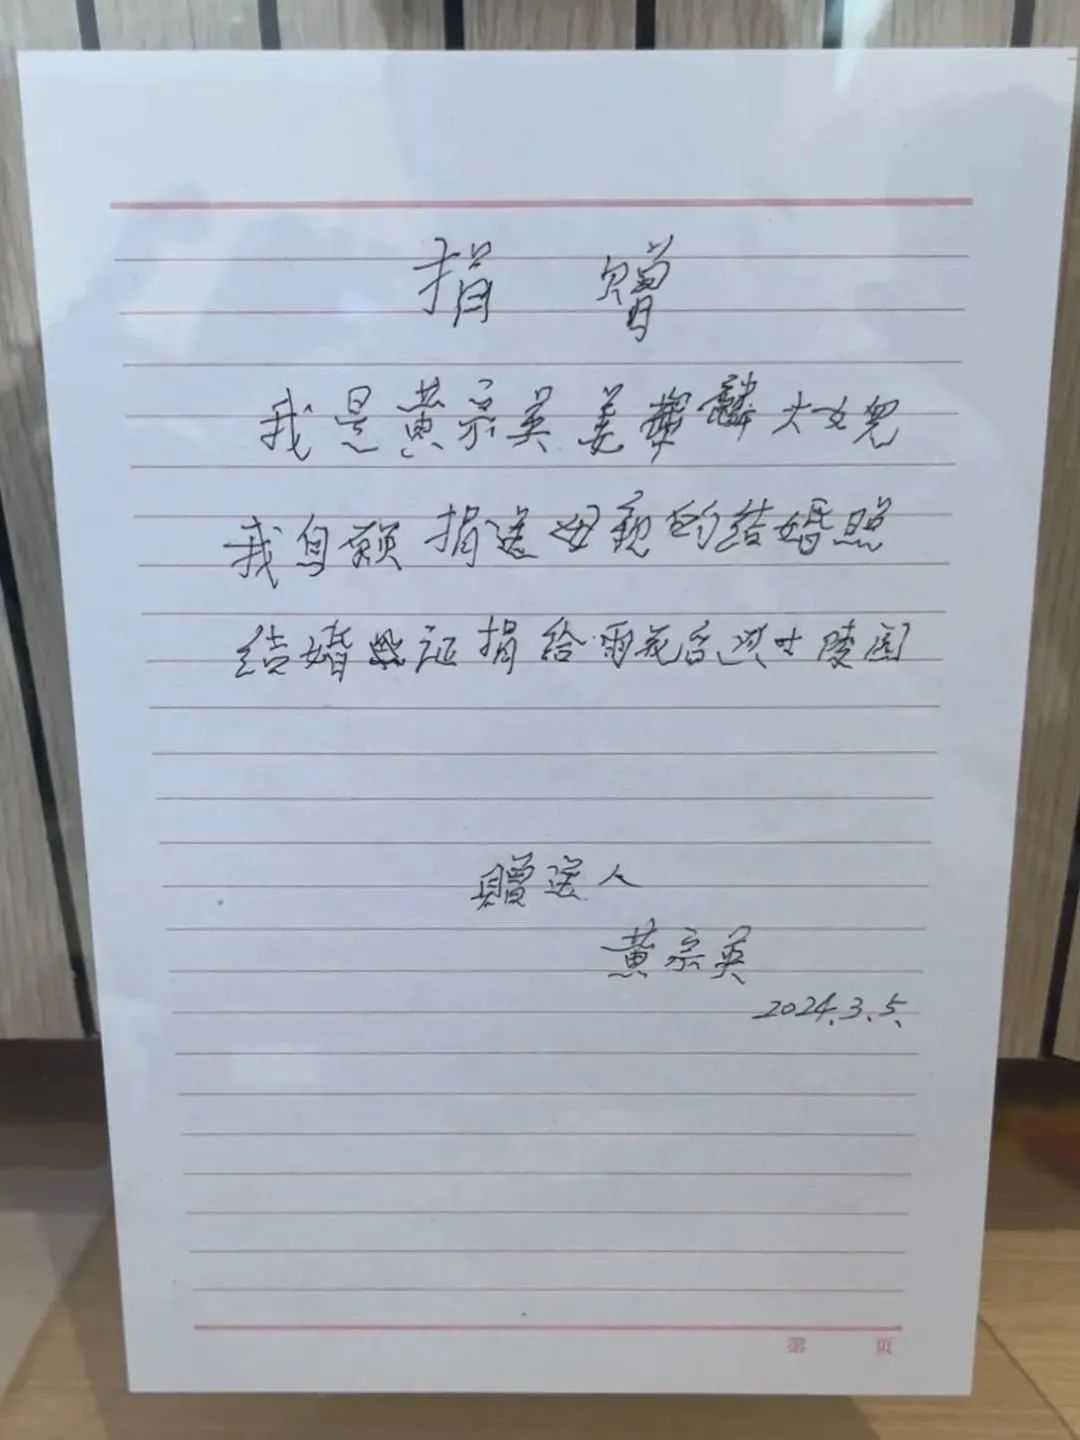 捐 赠
我是黄宗英姜辉麟大女儿
我自愿捐送母亲的结婚照
结婚证捐给雨花台烈士陵园
赠送人
黄宗英
2024.3.5.
第 页